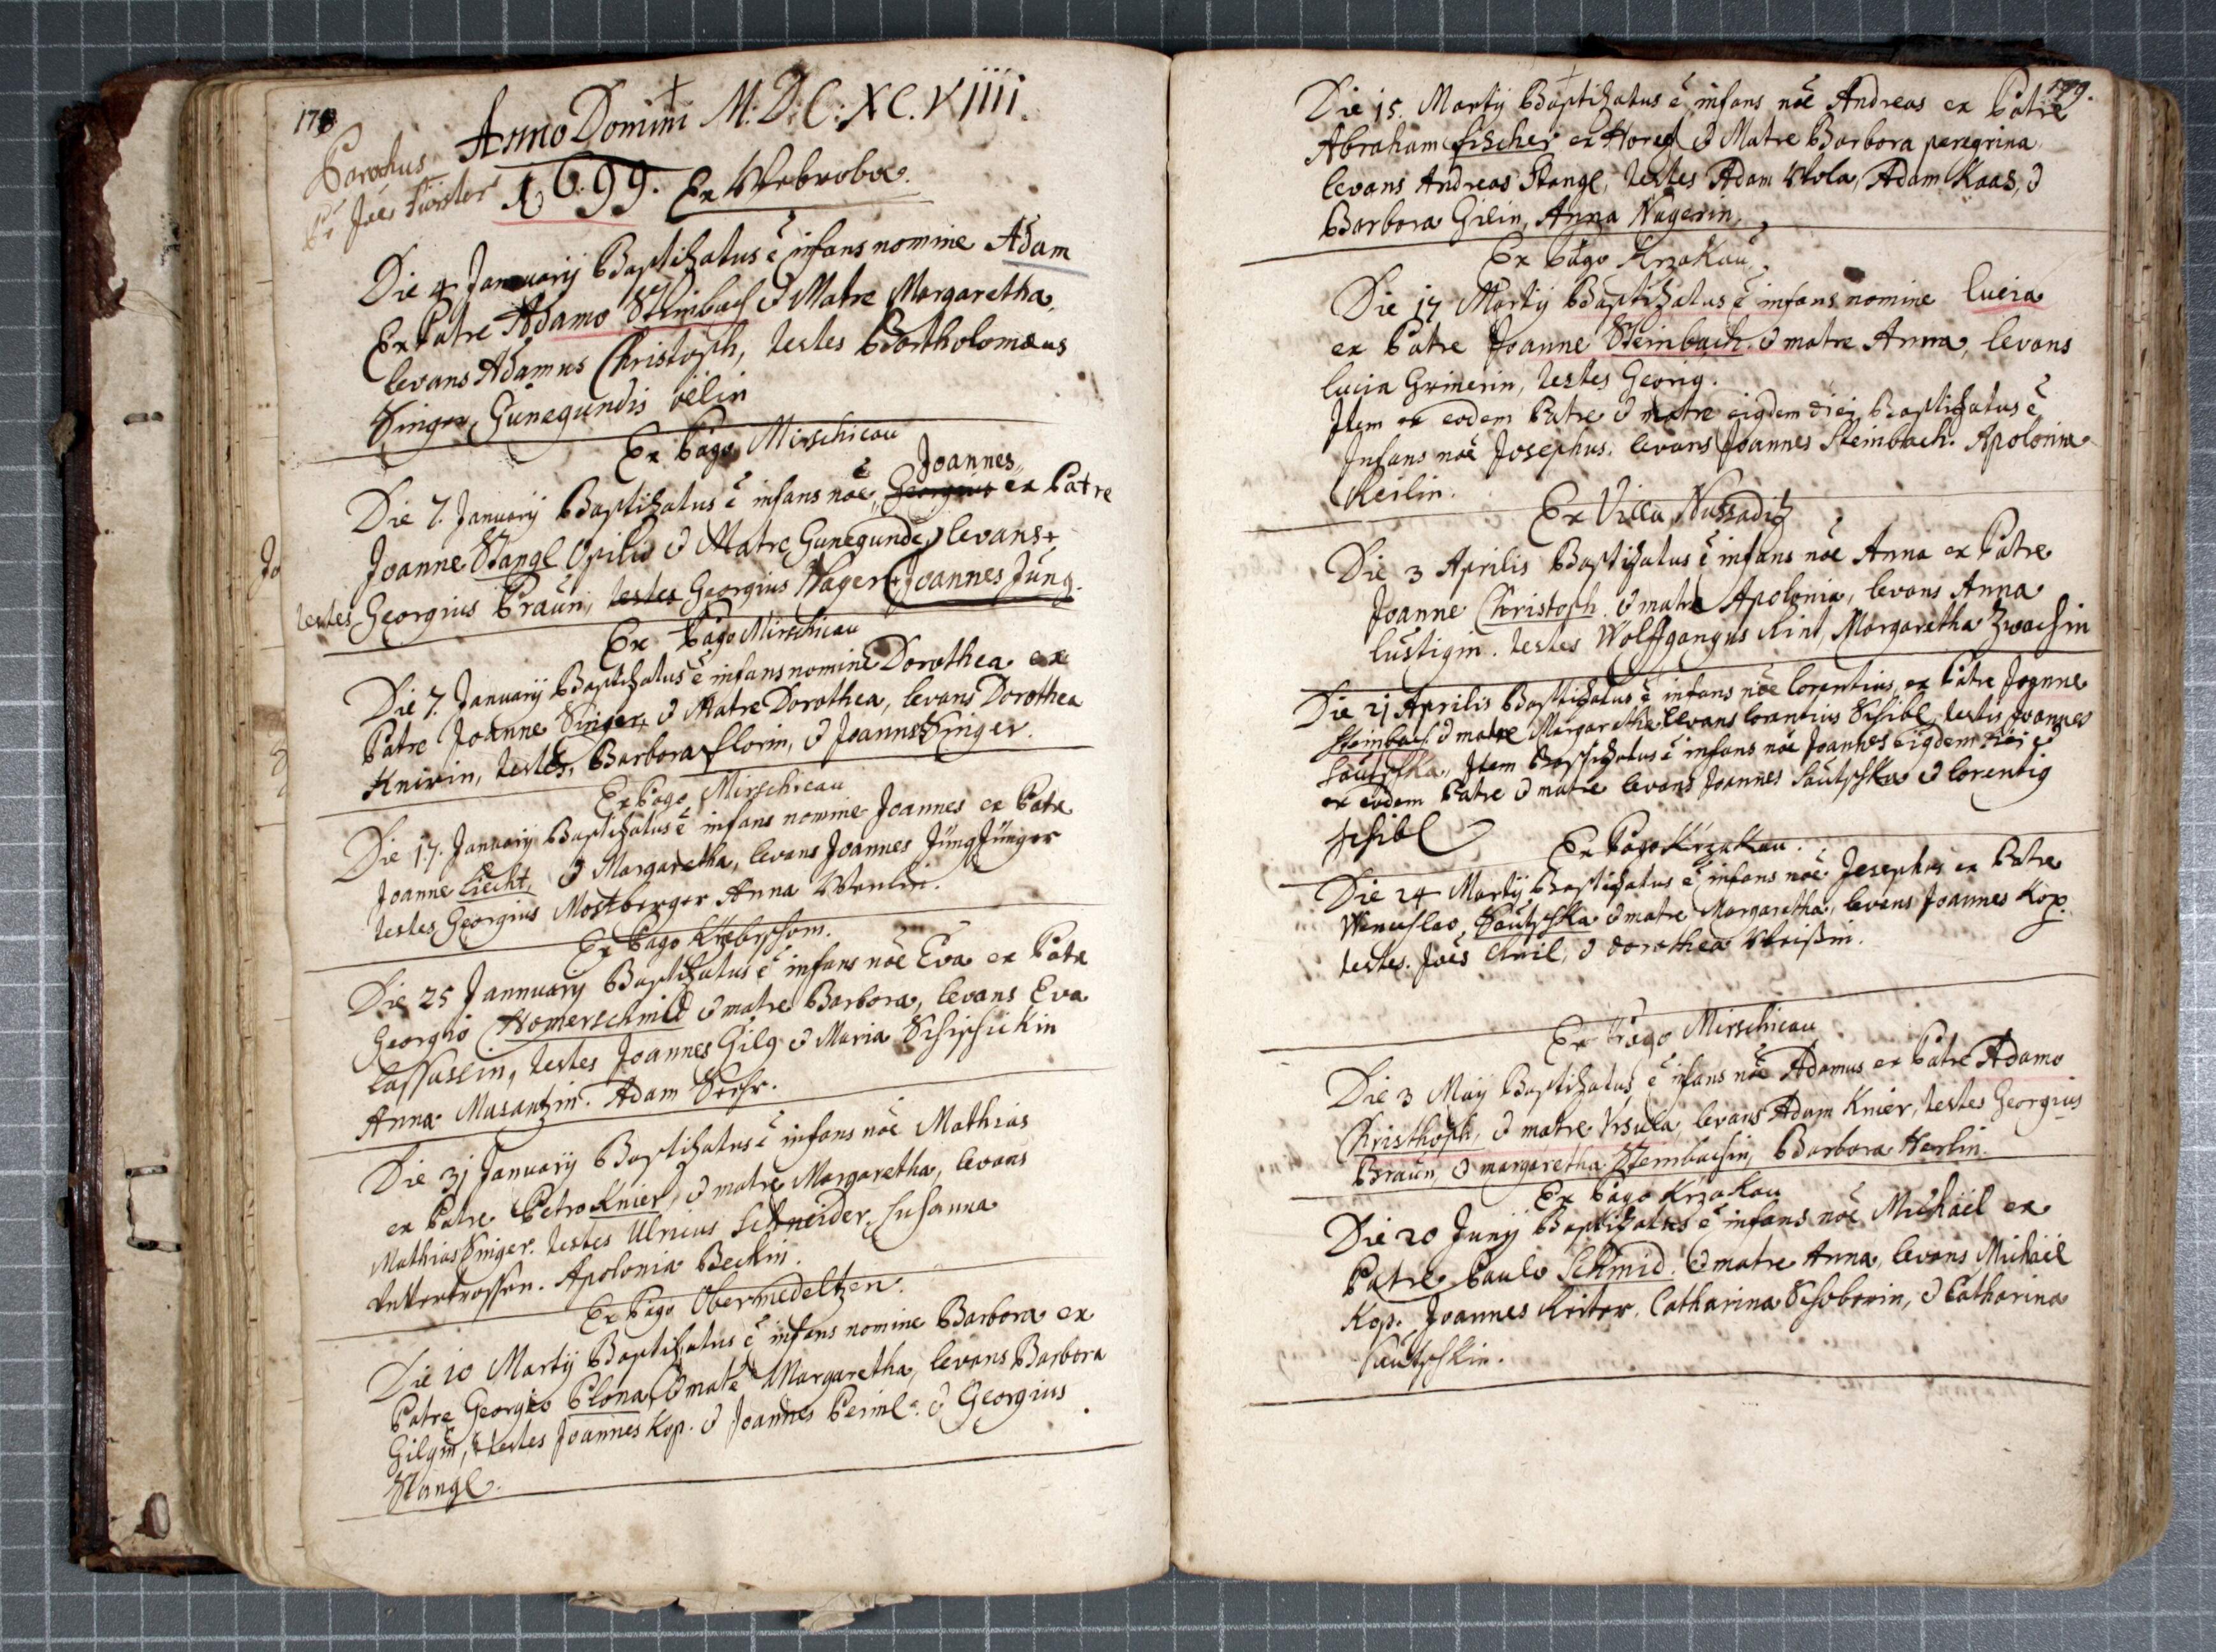 178
Anno Domini M.D.C.XC.VIIII.
Parochus
Pr Joes Förster
1699. Ex Webroba.
Die 4 January Baptizatus ẽ infans nomine Adam
Ex Patre Adamo Steinbach & Matre Margaretha,
levans Adamus Christoph, testes Bartholomæus
Singer, Gunegundis
Ex Pago Mirschicau
Joannes
Die 7. January Baptizatus ẽ infans nõe Georgius ex Patre
Joanne Stangl Opilio & Matre Gunegunde, levans +
testes Georgius Praun, testes Georgius Nager + Joannes Jung.
Ex Pago Mirschicau
Die 7. January Baptizatus ẽ infans nomine Dorothea ex
Patre Joanne Singer, & Matre Dorothea, levans Dorothea
Knirin, testes, Barbora florin, & Joannes Singer.
Ex Pago Mirschicau
Die 17. January Baptizatus ẽ infans nomine Joannes ex Patre
Joanne Liecht, & Margaretha, levans Joannes Jüng Jünger
testes Georgius Mostberger Anna
Ex Pago
Die 25 Jannuary Baptizatus ẽ infans nõe Eva ex Patre
Georgio Homerschmid & matre Barbora, levans Eva
testes Joannes Gilg & Maria
Anna Musantzin. Adam
Die 31 January Baptizatus ẽ infans nõe Mathias
ex Patre Petro Knier, & matre Margaretha, levans
Mathias Singer. testes Ulricus Schneider, Susanna
Apolonia Beckin.
Ex Pago Obermedeltzen.
Die 10 Marty Baptizatus ẽ infans nomine Barbora ex
Patre Georgio Plona, & mate Margaretha, levans Barbora
Gilgin, testes Joannes Kop. & Joannes Peiml. & Georgius
Stangl.
179.
Die 15. Marty Baptizatus ẽ infans nõe Andreas ex Patre
Abraham fischer ex & Matre Barbora peregrina
levans Andreas Stangl, testes Adam Wola, Adam Kaas, &
Barbora Gilin, Anna Nagerin,
Ex Pago Krzakau,
Die 17 Marty Baptizatus ẽ infans nomine Lucia
ex Patre Joanne Steinbach. & matre Anna, levans
Lucia Grinerin, testes Georig.
Item ex eodem Patre & matre eigdem diei Baptizatus ẽ
Infans nõe Josephus. levans Joannes Steinbach. Apolonia
Reilin.
Ex Villa Nussaditz
Die 3 Aprilis Baptizatus ẽ infans nõe Anna ex Patre
Joanne Christoph. & matre Apolonia, levans Anna
Lustigin. testes Wolffgangus Rint, Margaretha
Die 21 Aprilis Baptizatus ẽ infans nõe Lorentius ex Patre Joanne
Steinbach & matre Margaretha levans Lorentius Schibl, testis Joannes
Sautschka, Item Baptizatus ẽ infans nõe Joannes eigdem diei &
ex eodem Patre & matre levans Joannes Sautschka & Lorentig
schibl
Ex Pago Krzakau.
Die 24 Marty Baptizatus ẽ infans nõe Josephus ex Patre
Wenceslao, Sautschka & matre Margaretha, levans Joannes Kop.
testes. Joẽs & dorothea
Ex Pago Mirschicau
Die 3 May Baptizatus ẽ infans nõe Adamus ex Patre Adamo
Christhoph, & matre Ursula, levans Adam Knier, testes Georgius
Braun, & margaretha Steinbachin, Barbora Herlin.
Ex Pago Krzakau
Die 20 Juny Baptizatus ẽ infans nõe Michäel ex
Patre Paulo Schmid. & matre Anna, levans Michäel
Kop. Joannes Reiter. Catharina Schoberin, & Catharina
Sautschkin.